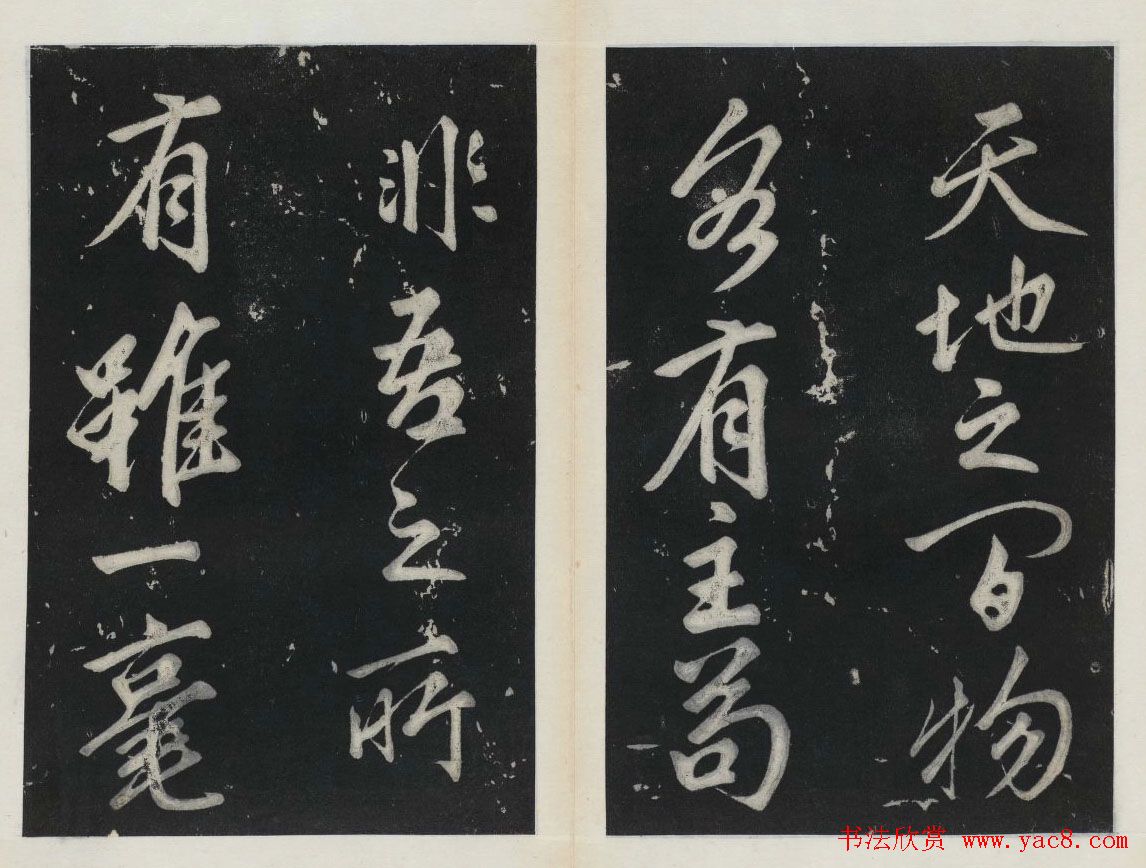 天地之間物
各有主苟
非吾之所
有雖一毫
书法欣赏 www.yac8.com